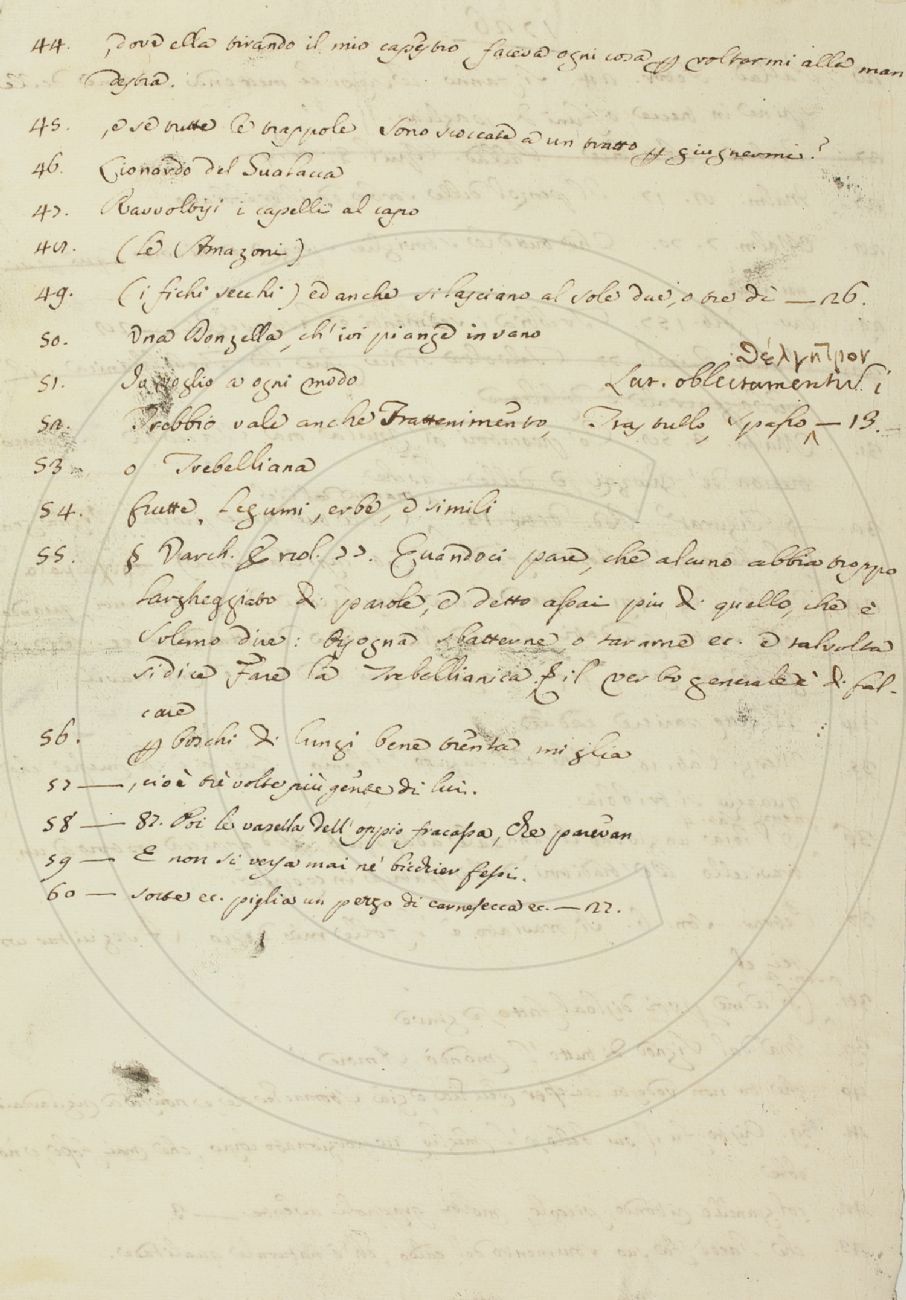 44. , dove ella tirando il mio capestro faceva ogni cosa p voltarmi alla man
destra.
45. , e se tutte le trappole sono scoccate a un tratto p giugnermi?
46. Lionardo del Guatacca
47. Ravvoltisi i capelli al capo
48. (Le Amazoni)
49. (i fichi secchi) ed anche si lasciano al sole due, o tre dì — 26.
50. Una Donzella, ch' ivi piange in vano
θέλγητρον
51. Io voglio a ogni modo Lat. oblectamentu. i
52. Trebbio vale anche Trattenimento, Trastullo, Spasso — 13.
53 o Trebelliana
54. frutte, legumi, erbe, e simili
55. § Varch. Ercol. 77. Quando ci pare, che alcuno abbia troppo
largheggiato di parole, e detto assai più di quello, che è
solemo dire: bisogna sbatterne, o tararne ec. e talvolta
si dice Fare la Trebellianica, e il verbo generale è di fal-
care
56. p boschi di lungi bene trenta miglia
57 — , cioè tre volte più gente di lui.
58 — 87. Poi le vasella dell' oppio fracassa, che parevan
59 — E non si versa mai nè bicchier fessi.
60 — sotte ec. piglia un pezzo di carnesecca ec. — 22.